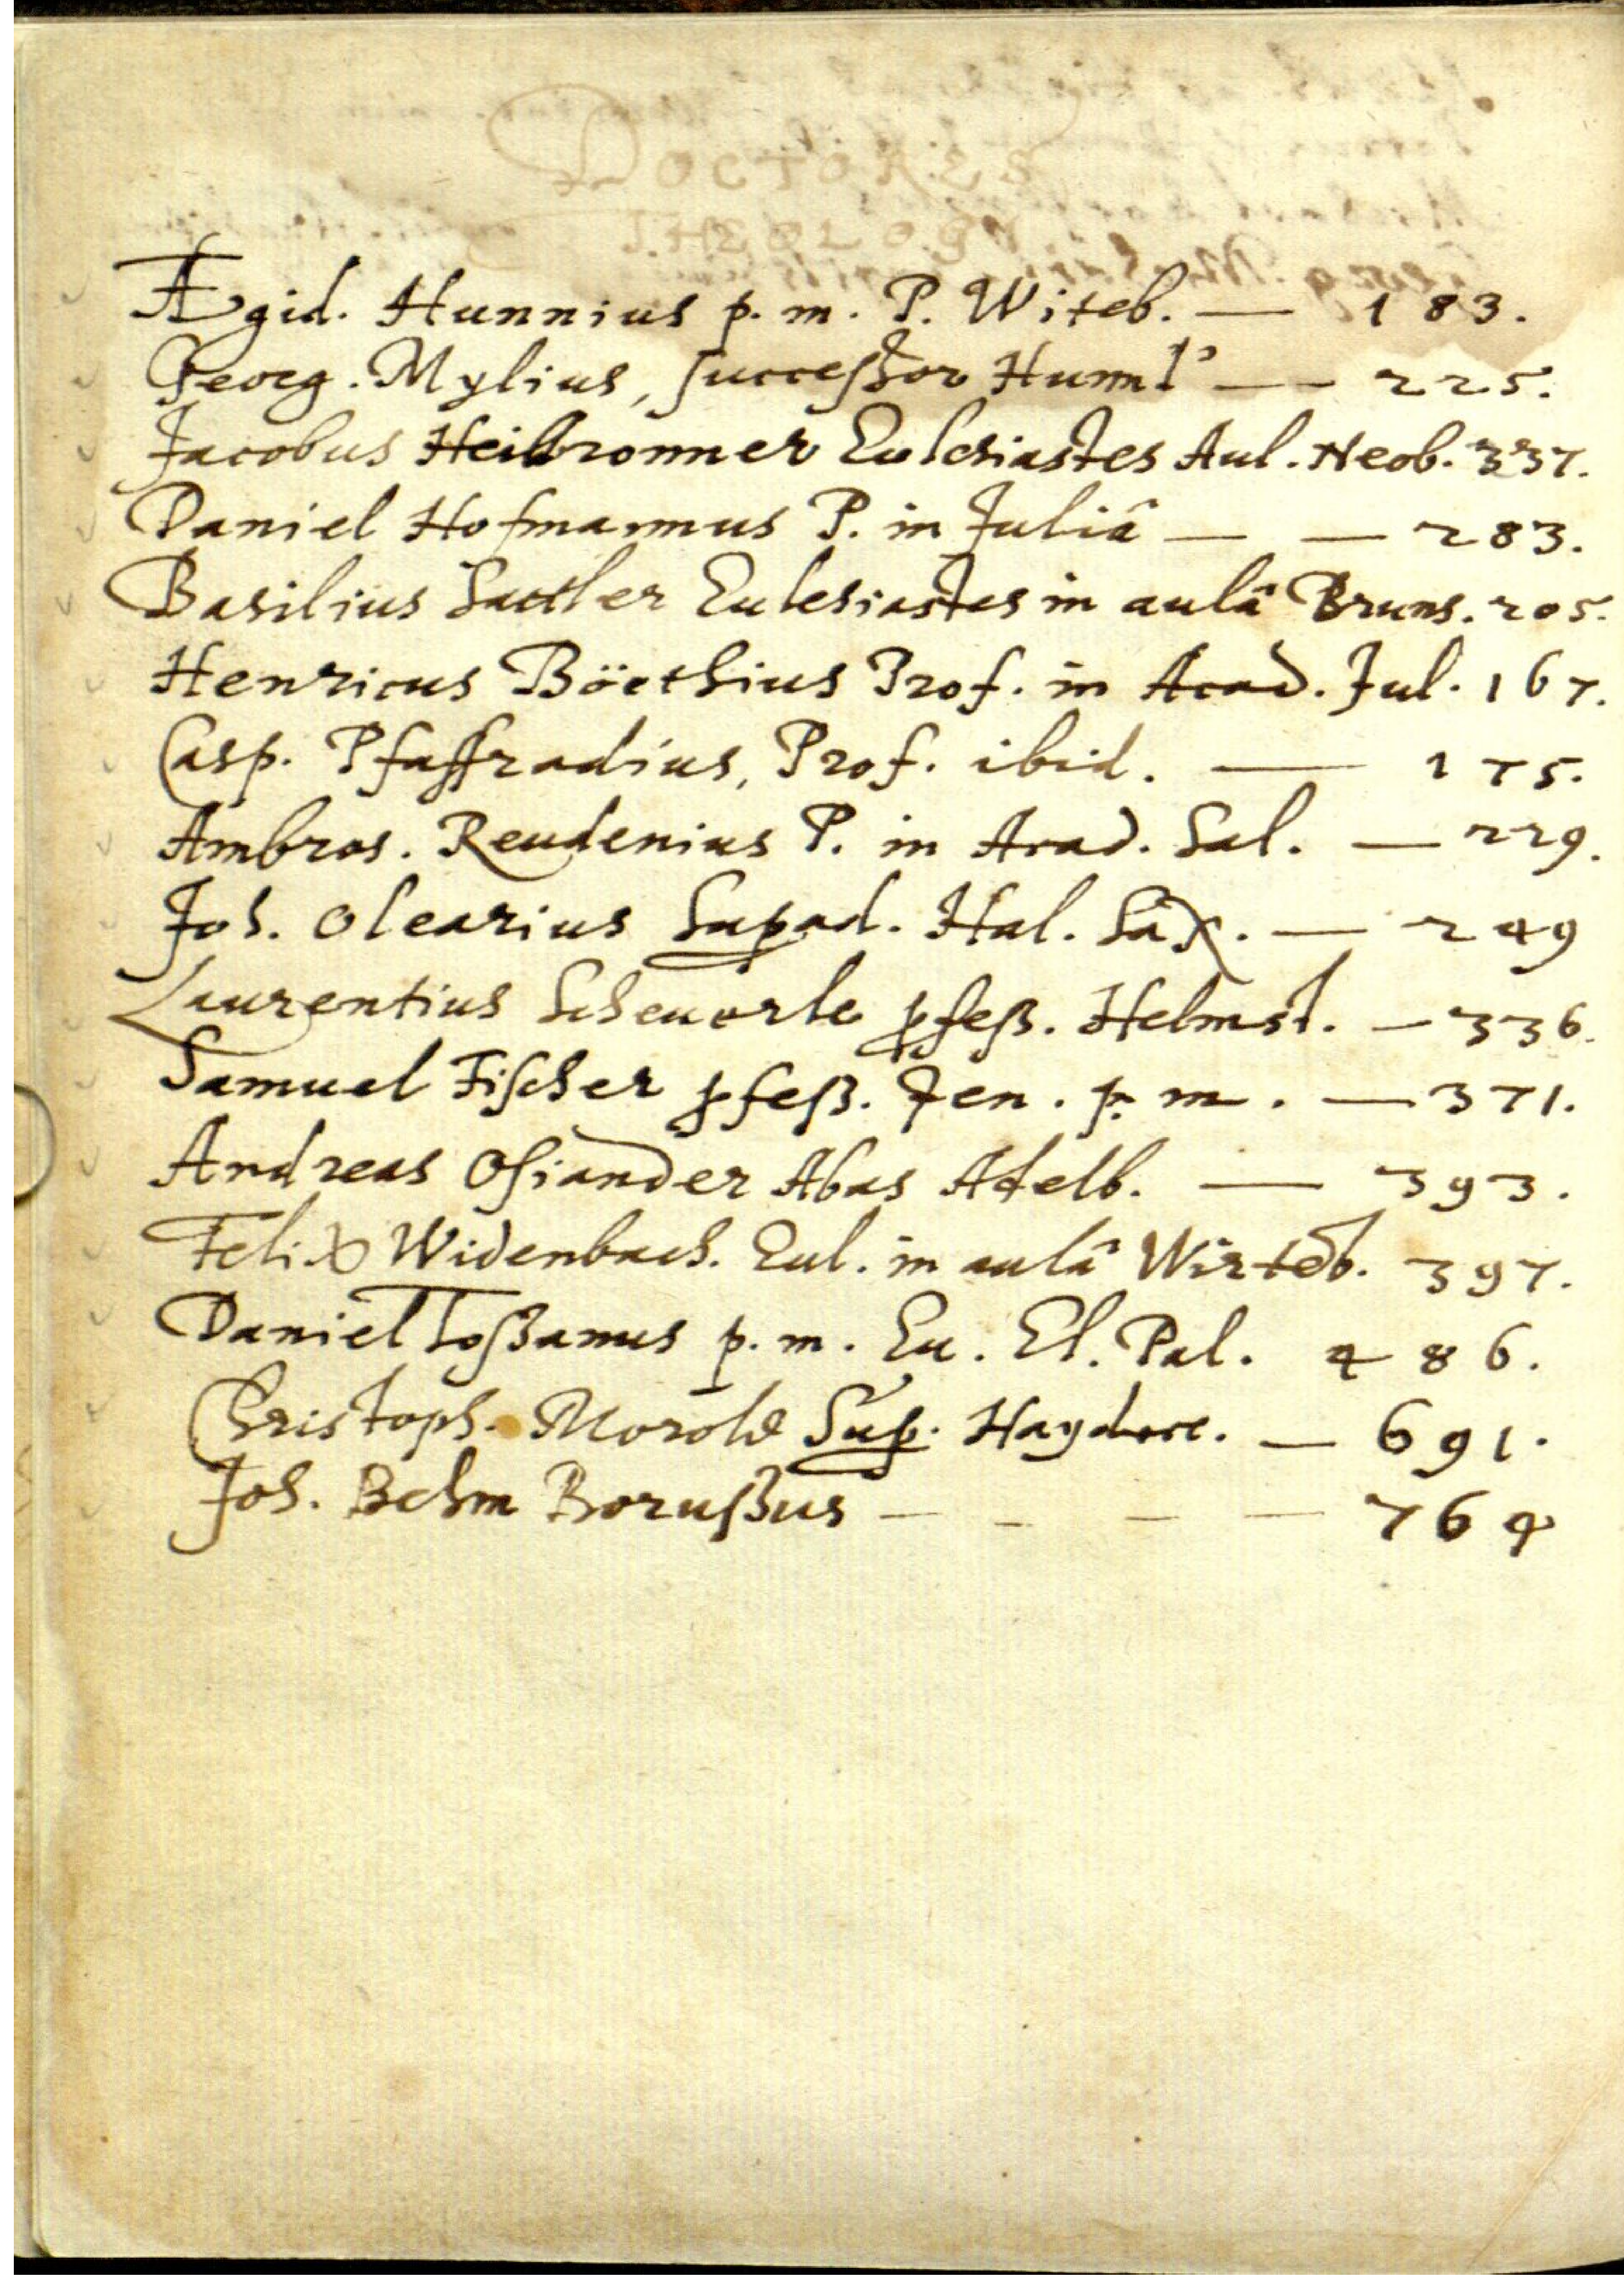 DOCTORES
THEOLOGI.
Ægid. Hunnius p. m. P. Witeb. — 183.
Georg. Mylius, successor Hunnÿ — 225.
Jacobus Heilbronner Ecclesiastes Aul. Neob. 337.
Daniel Hofmannus P. in Juliâ — — 283.
Basilius Sattler Ecclesiastes in aulâ Bruns. 205.
Henricus Böethius Prof. in Acad. Jul. 167.
Casp. Pfaffradius, Prof. ibid. — 175.
Ambros. Reudenius P. in Acad. Sal. — 229.
Joh. Olearius Supad. Hal. Sax. — 249
Laurentius Scheuerle pfeß. Helmst. — 336.
Samuel Fischer pfeß. Jen. p. m. — 371.
Andreas Osiander Abas Adelb. — 393.
Felix Widenbach. Eccl. in aulâ Wirteb. 397.
Daniel Toßanus p. m. Ecc. El. Pal. 486.
Christoph. Morold Sup. — 691.
Joh. Behm Borußus — — — — 764